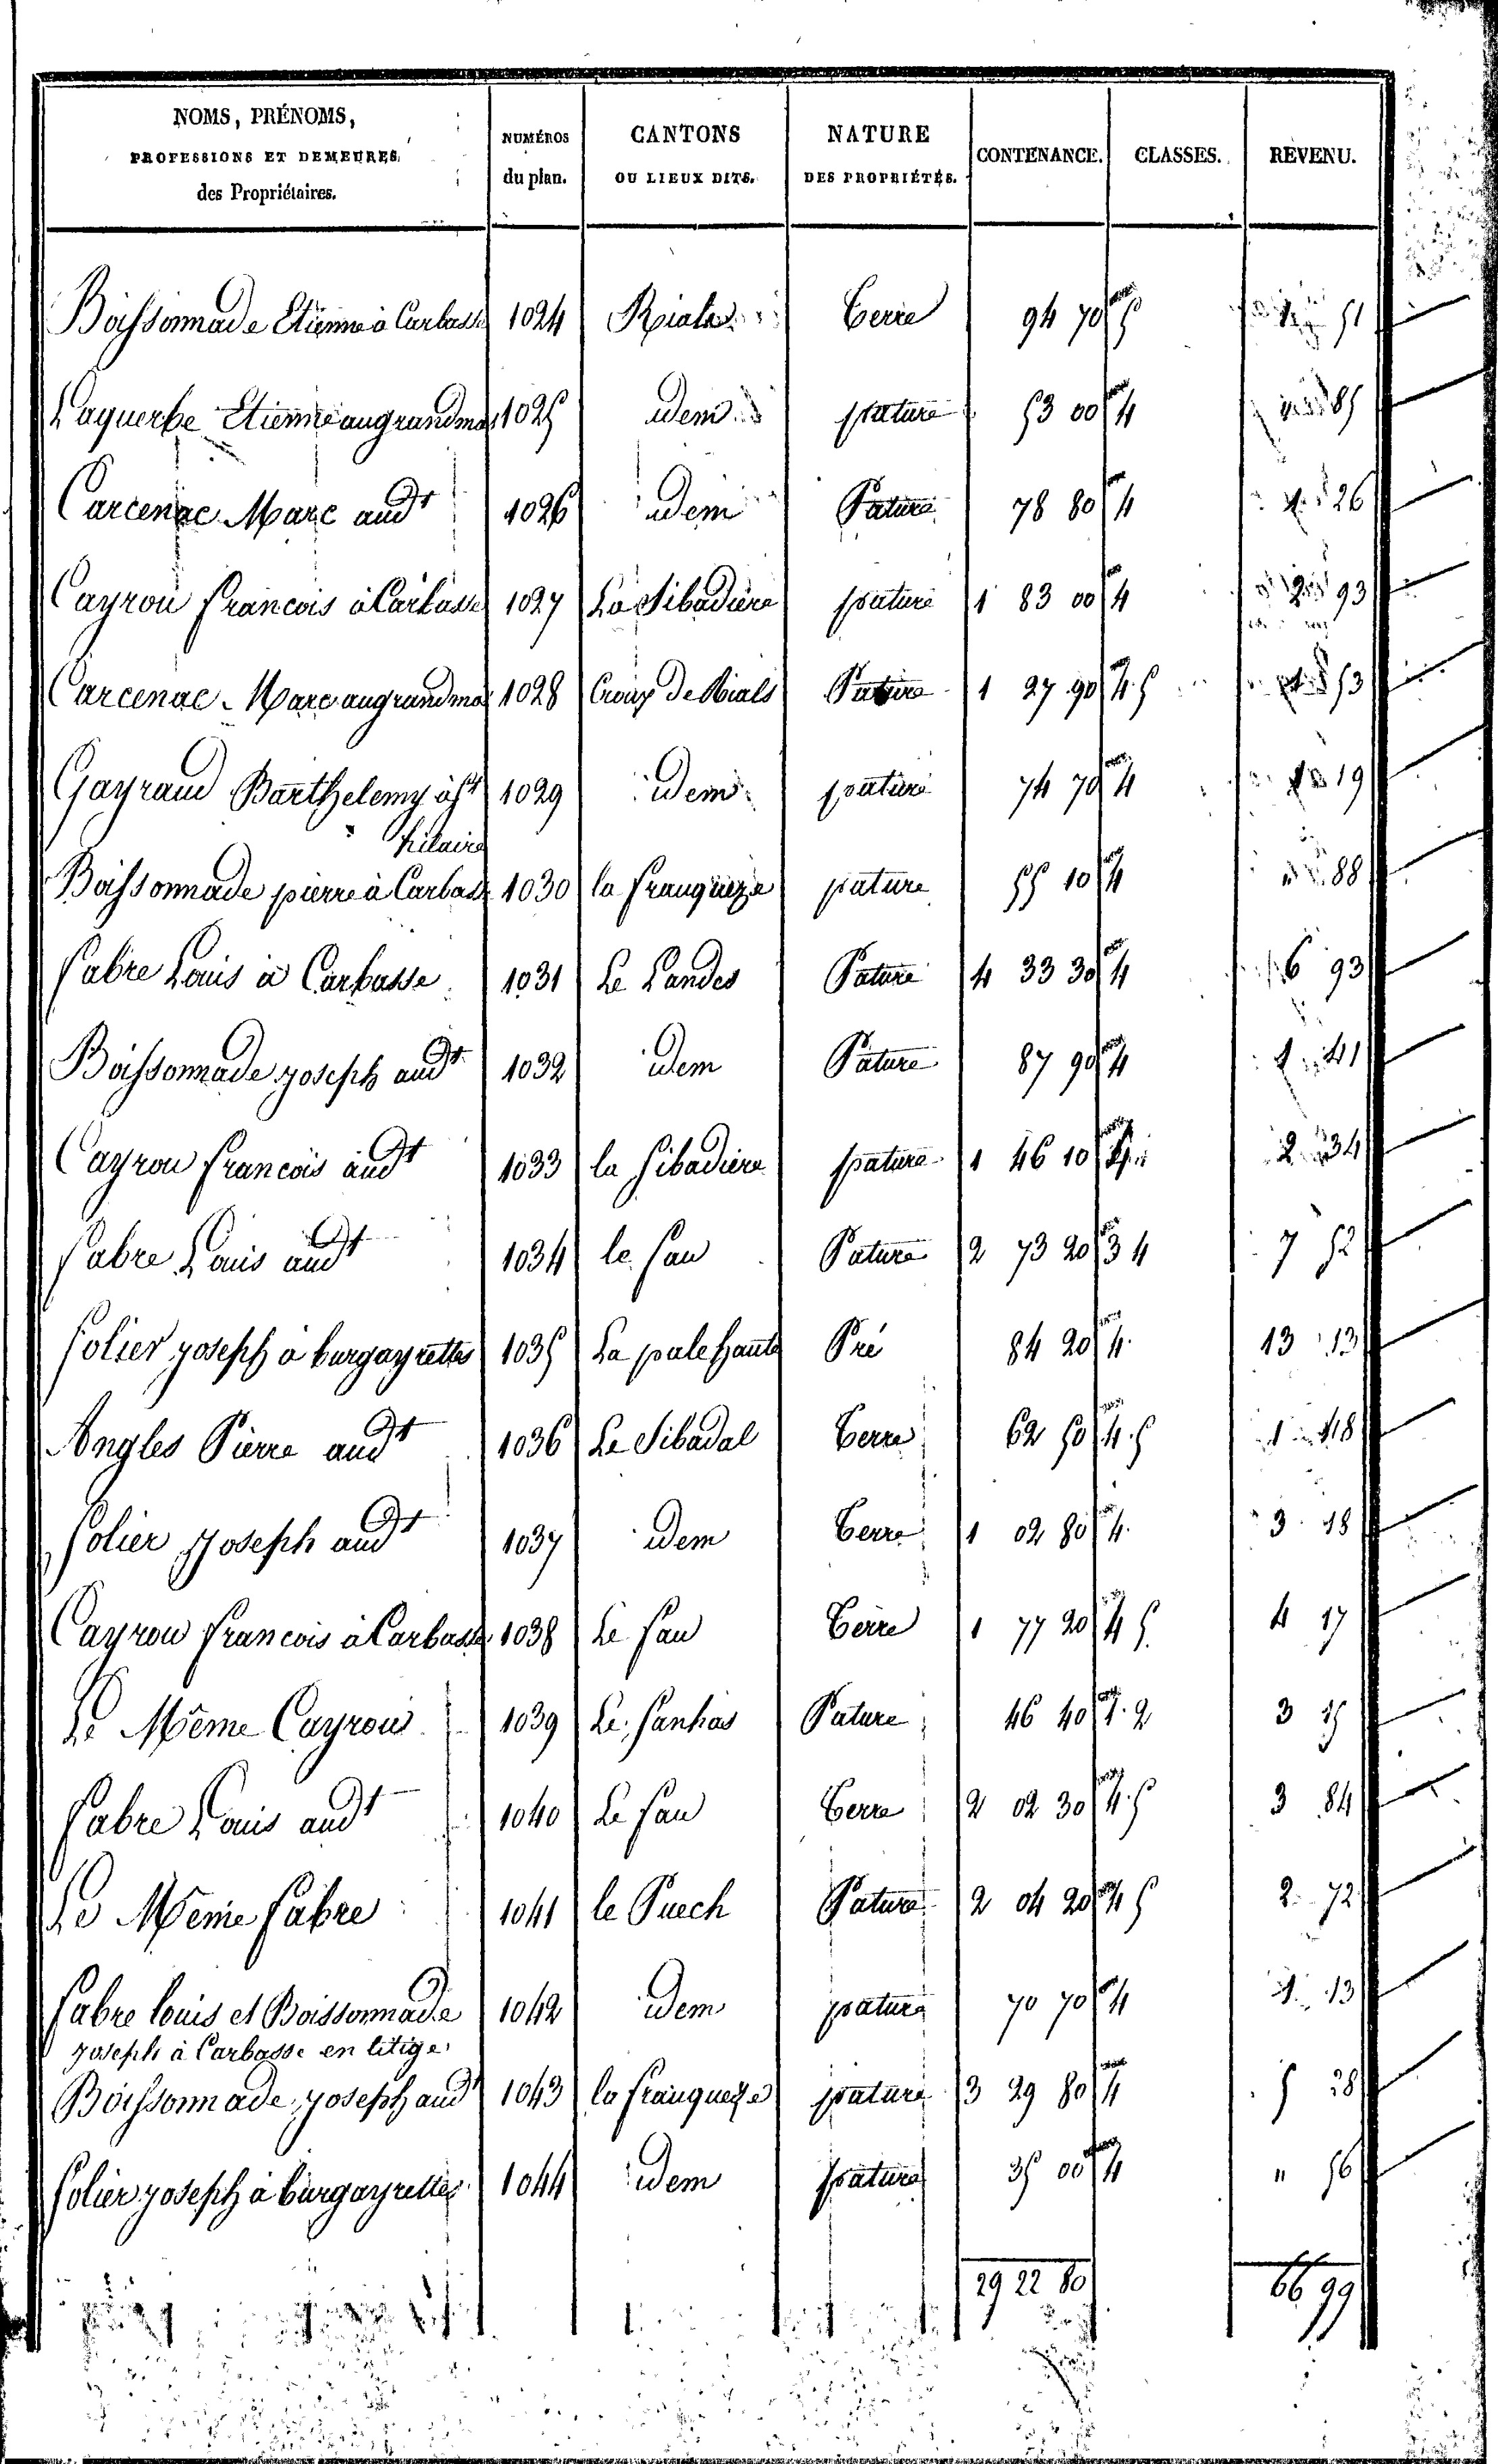 NOMS, PRÉNOMS, PROFESSIONS ET DEMEURES des Propriétaires. | NUMÉROS du plan. | CANTONS OU LIEUX DITS. | NATURE DES PROPRIÉTÉS. | CONTENANCE. | CLASSES. | REVENU.
Boissonnade Etienne à Carbasse 1024 Rials Terre 94 70 5 51
Laquerbe Etienne au grand mas 1025 idem pature 53 00 4 85
Carcenac Marc aud t 1026 idem Pature 78 80 4 1 26
Cayrou francois à Carbasse 1027 La Sibadiere pature 1 83 00 4 2 93
Carcenac Marc au grand mas 1028 Croux de Rials Pature 1 27 90 4.5 53
Gayraud Barthelemy à st 1029 idem pature 74 70 4 1 19
hilaire
Boissonnade pierre à Carbasse 1030 la franqueze pature 55 10 4 " 88
fabre Louis à Carbasse 1031 Le Landes Pature 4 33 30 4 6 93
Boissonnade joseph aud t 1032 idem Pature 87 90 4 1 41
Cayrou francois aud t 1033 la Sibadiere pature 1 46 10 4 2 34
fabre Louis aud t 1034 le fau Pature 2 73 20 3 4 7 52
Solier joseph à burgayrettes 1035 La pale haute Pré 84 20 4. 13 13
Angles Pierre aud t 1036 Le Sibadal Terre 62 50 4.5 1 18
Solier Joseph aud t 1037 idem Terre 1 02 80 4. 3 18
Cayrou francois à Carbasse 1038 Le fau Terre 1 77 20 4 5. 4 17
Le Même Cayrou 1039 Le fanhas Pature 46 40 1.2 3 15
fabre Louis aud t 1040 Le fau Terre 2 02 30 4.5 3 84
Le Même fabre 1041 le Puech Pature 2 04 20 4 5 2 72
fabre louis et Boissonnade 1042 idem pature 70 70 4 1 13
joseph à Carbasse en litige
Boissonnade joseph aud t 1043 la franqueze pature 3 29 80 4 5 28
Solier joseph à burgayrettes 1044 idem pature 35 00 4 " 56
29 22 80 66 99